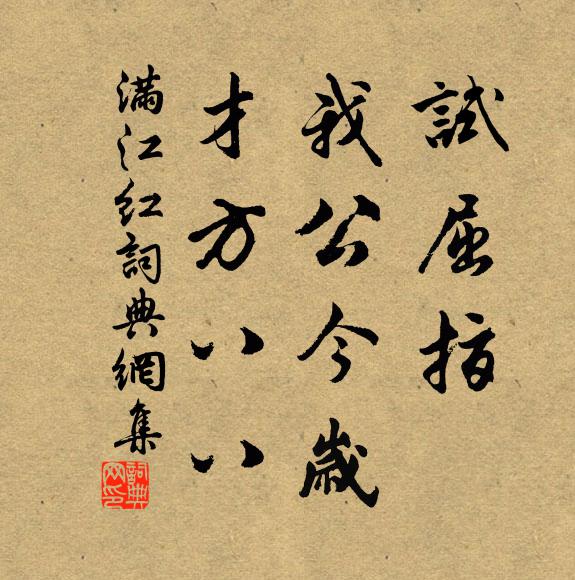 試屈指
我公今歲
才方八八
滿江紅詞典網集
詞典网印